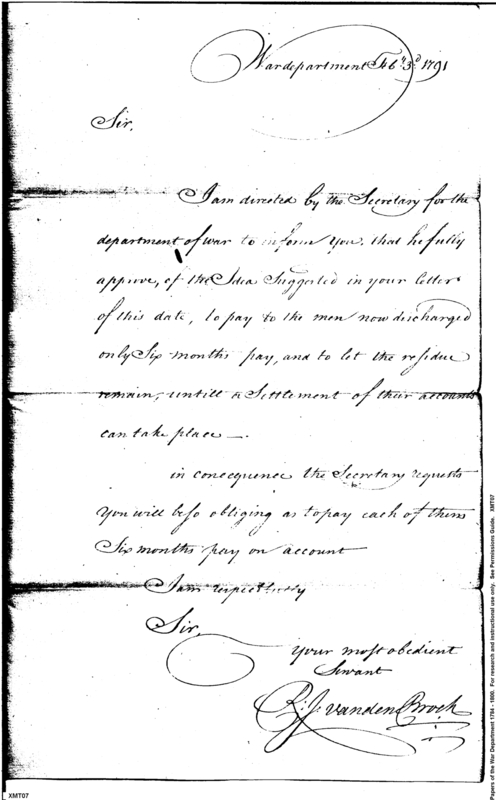 Wardepartment Feb.y 3d 1791
Sir,
I am directed by the Secretary for the
department of war to inform you, that he fully
approve, of the Idea Suggested in your letter
of this date, to pay to the men now discharged
only Six months pay, and to let the residue
remain, untill a Settlement of their accounts
can take place —.
in consequence the Secretary requests
you will be so obliging as to pay each of them
Six months pay on account
I am respectfully
Sir,
your most obedient
Servant
R: J: vanden Broek
Papers of the War Department 1784 - 1800. For research and instructional use only. See Permissions Guide. XMT07
XMT07